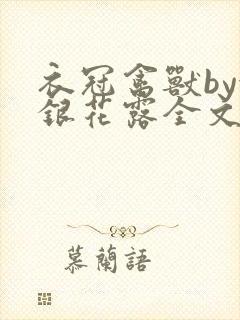 衣冠禽獸by
銀花露全文
慕蘭語